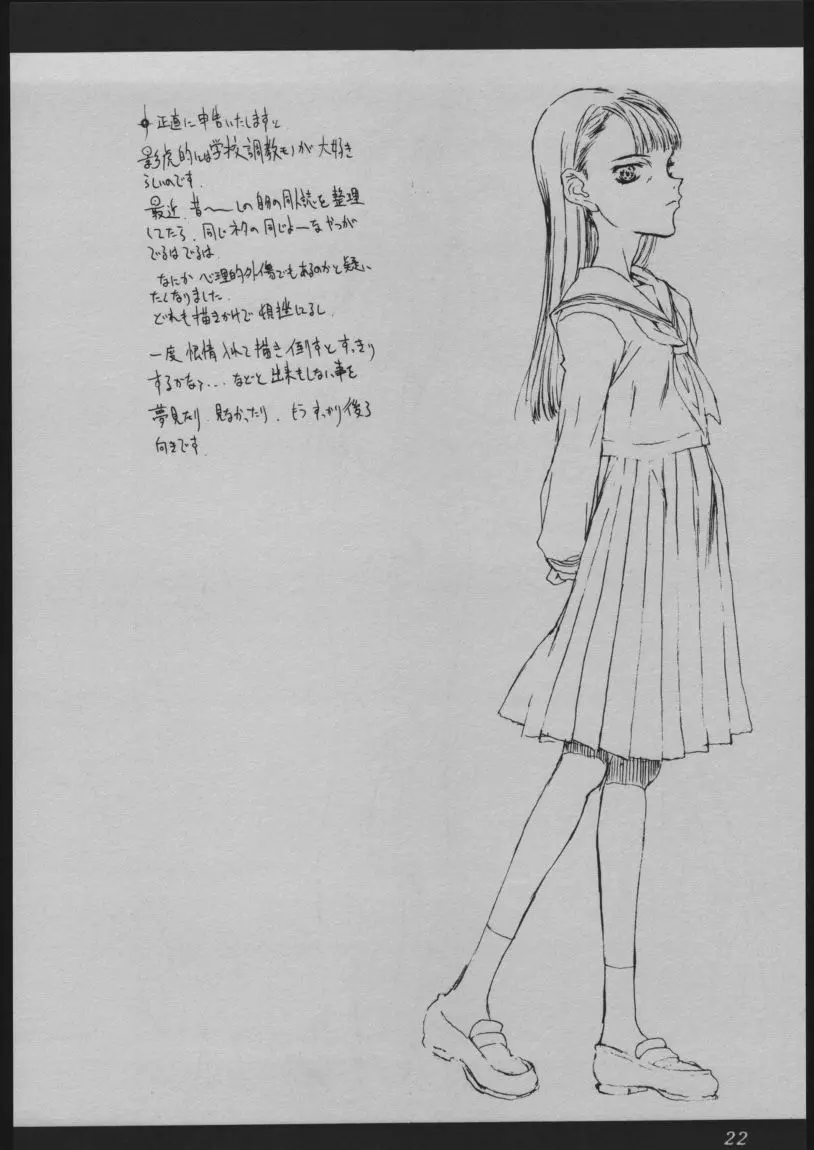 正直に申告いたしますと
影虎的には学校調教モノが大好き
らしいのです.
最近、昔〜しの自分の同人誌を整理
してたら、同じネタの同じよーなやつが
でるはでるは.
なにか心理的外傷でもあるのかと疑い
たくなりました.
どれも描きかけで 頓挫してるし.
一度 根情入れて描き倒すとすっきり
するかなァ... などと出来もしない事を
夢見たり 見なかったり. もうすっかり後ろ
向きです.
22